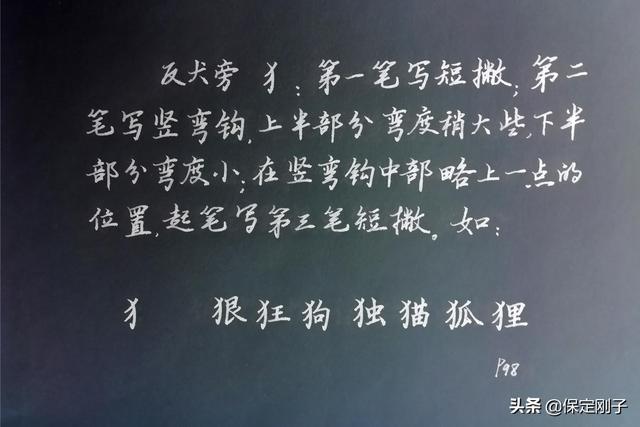 反犬旁 犭:第一笔写短撇;第二
笔写竖弯钩,上半部分弯度稍大些,下半
部分弯度小;在竖弯钩中部略上一点的
位置,起笔写第三笔短撇。如:
犭 狠狂狗独猫狐狸
P98
头条 @保定刚子